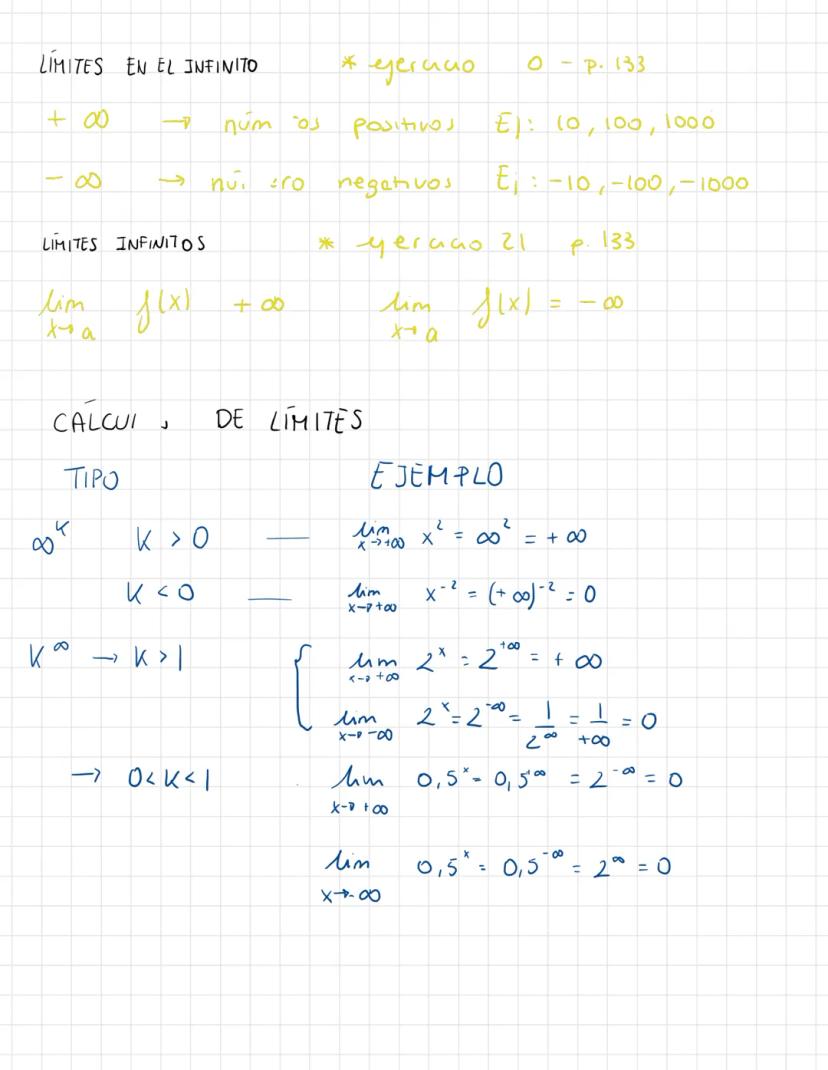 LÍMITES EN EL INFINITO * ejercicio 0 - p. 133
+ ∞ → positivos Ej: 10, 100, 1000
- ∞ → negativos Ej: -10, -100, -1000
LÍMITES INFINITOS * ejercicio 21 p. 133
lim x→a f(x) +∞ lim x→a f(x) = -∞
DE LÍMITES
TIPO EJEMPLO
∞^K K > 0 — lim x→+∞ x² = ∞² = +∞
K < 0 — lim x→+∞ x⁻² = (+∞)⁻² = 0
K^∞ → K > 1 { lim x→+∞ 2^x = 2^+∞ = +∞
lim x→-∞ 2^x = 2^-∞ = 1/2^∞ = 1/+∞ = 0
→ 0 < K < 1 lim x→+∞ 0,5^x = 0,5^∞ = 2^-∞ = 0
lim x→-∞ 0,5^x = 0,5^-∞ = 2^∞ = 0